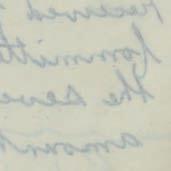 received
committ
the seve
amount